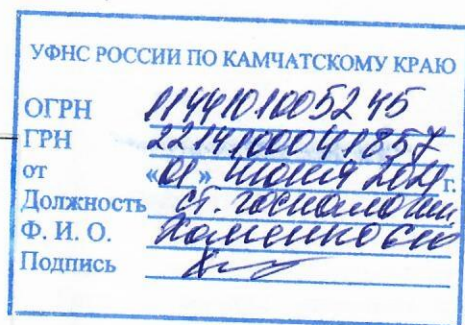 УФНС РОССИИ ПО КАМЧАТСКОМУ КРАЮ
ОГРН 1144101005245
ГРН 2214100041857
от «01» июня 2021 г.
Должность ст.
Ф. И. О. Хоменко
Подпись